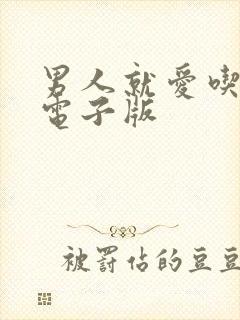 男人就愛喫
電子版
被罰佔的豆豆